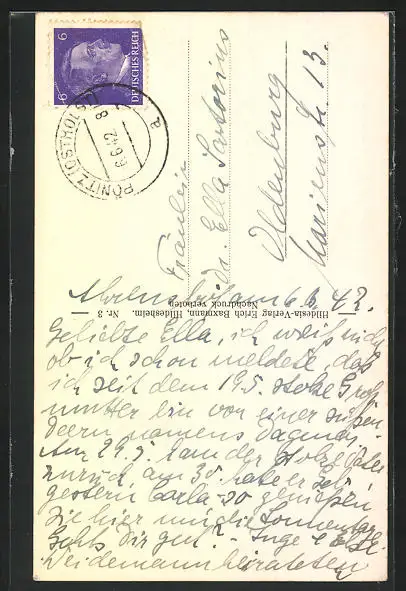 6
6
DEUTSCHES REICH
PÖNITZ (OSTHOLST)
6.6.42
8
a
Fräulein
Dr. Ella Sartorius
Oldenburg
Marienstr. 13.
Hildesia-Verlag Erich Baxmann, Hildesheim. Nr. 3
Nachdruck verboten
6.6.42.
Geliebte Ella, ich weiß nicht
ob ich schon meldete, daß
ich seit dem 19.5. stolze Groß
mutter bin von einer süßen
Deern namens Dagmar.
Am 29.5. kam der stolze Vater
zurück am 3. holte er sich
gestern Carla - so genießen
Sie hier nun die Sonnentage
Gehts Dir gut? - Inge
Weidemann heirateten